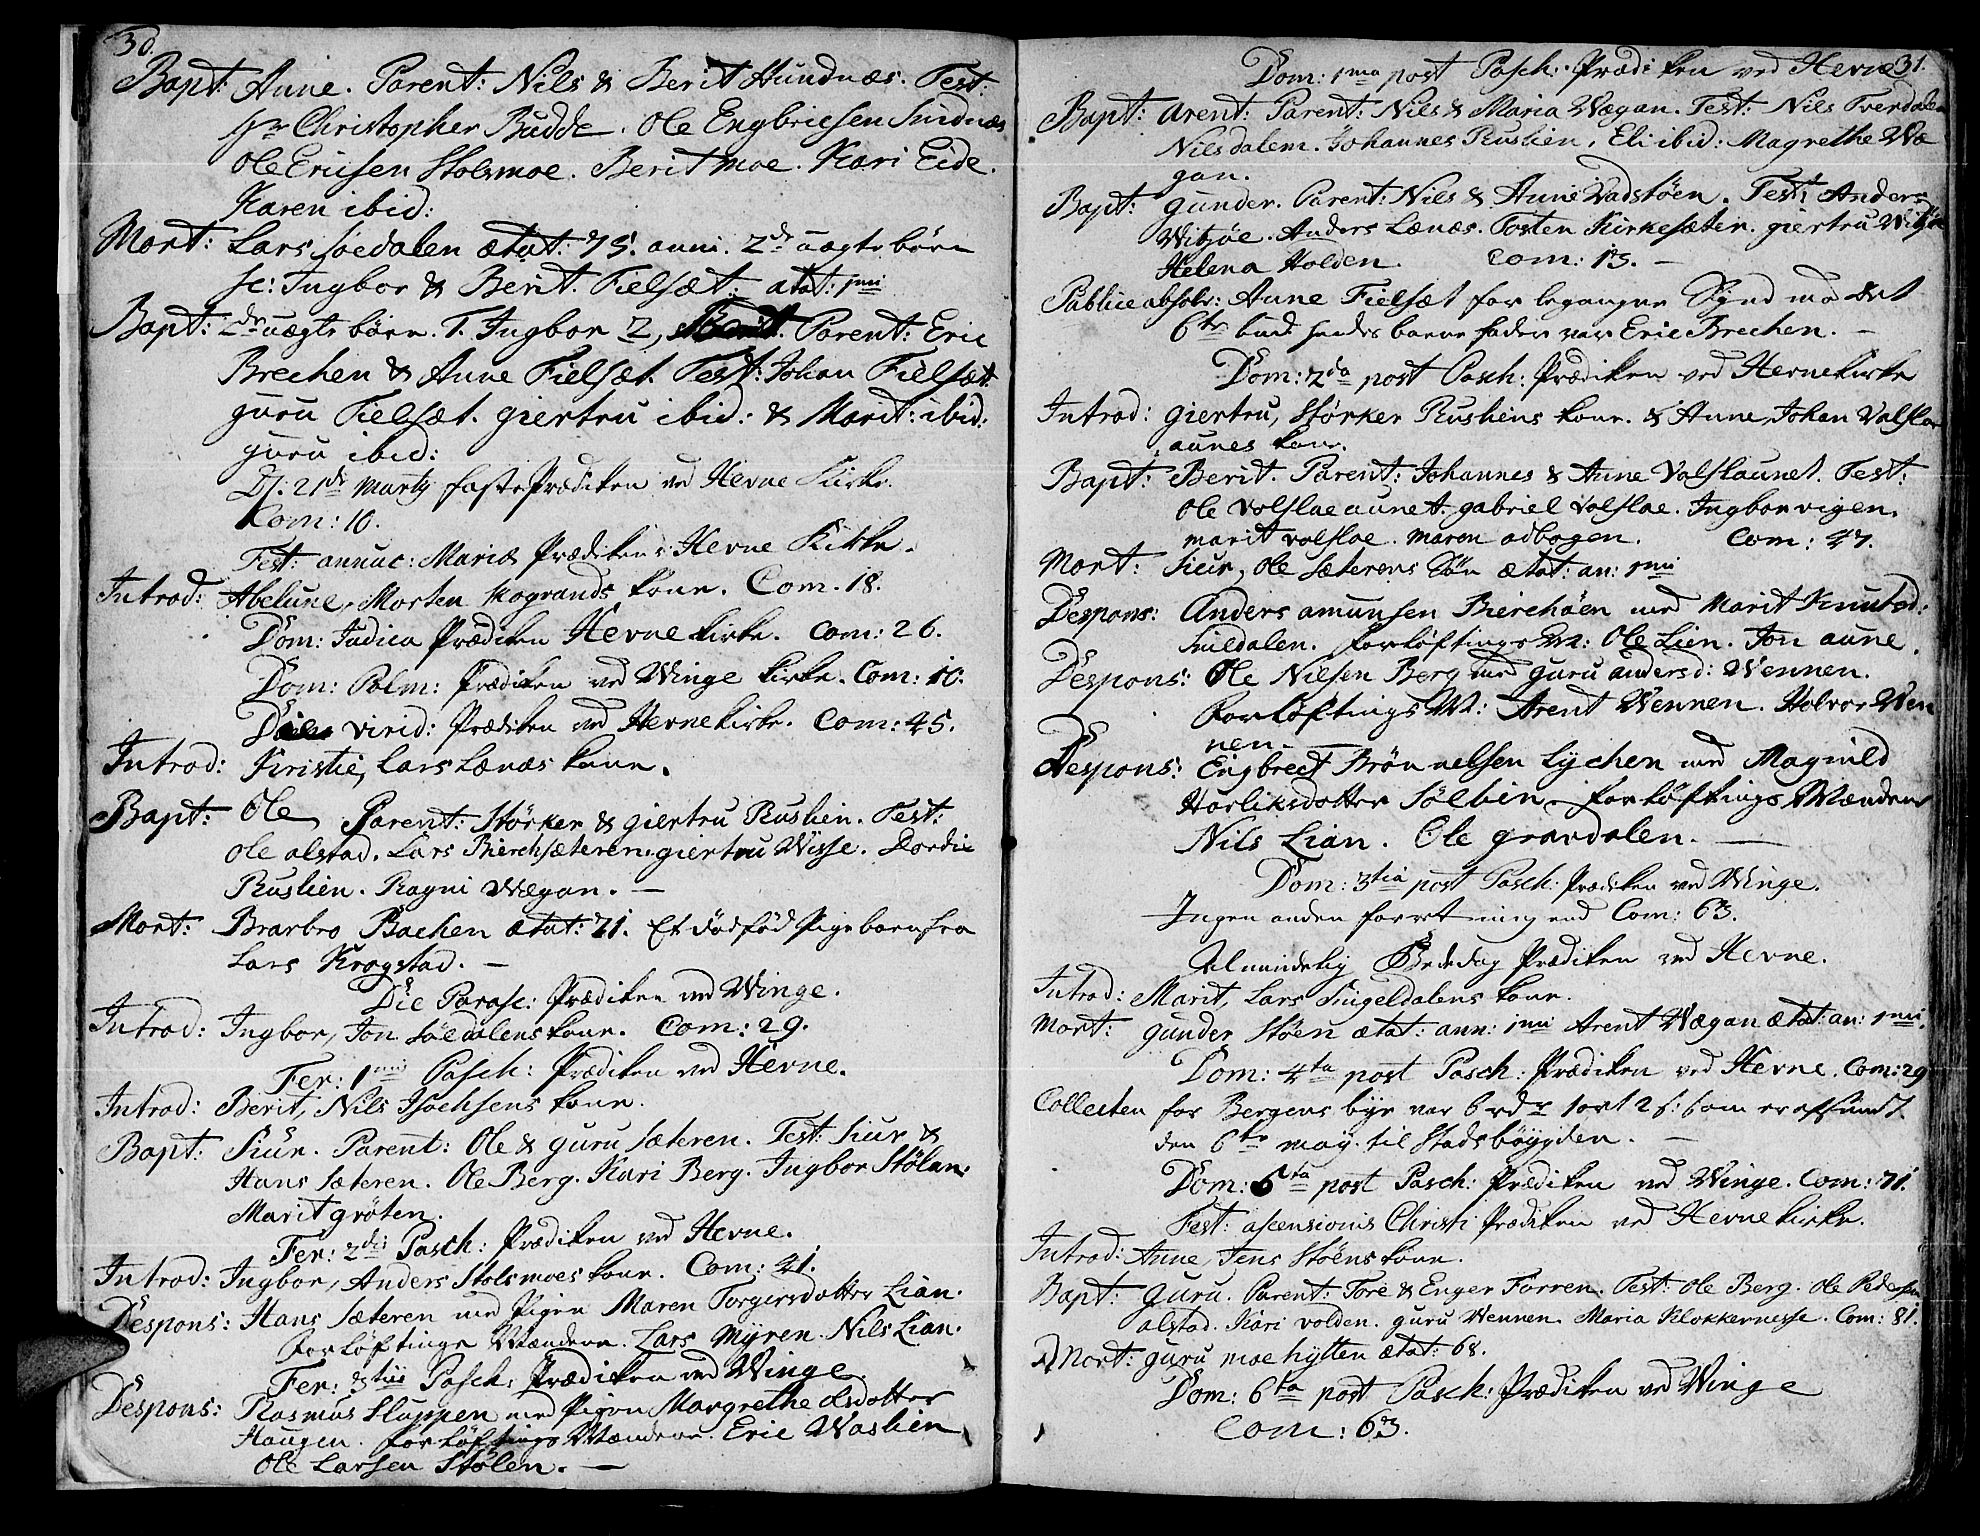 30.
Bapt: Anne. Parent: Nils & Berit Hundnæs. Test:
Hr Christopher Budde. Ole Engbricsen Snidnæs
Ole Ericsen Stolsmoe. Berit moe. Kari Eide.
Karen ibid:
Mort: Lars Søedalen ætat: 75. anni. 2de uægte børn
sc: Ingbor & Berit. Fielsæt: ætat: 1mi
Bapt: 2de uægte børn. 1. Ingbor 2, Berit. Parent: Eric
Brechen & Anne Fielsæt. Test: Johan Fielsæt.
guru Fielsæt. giertru ibid: & Marit: ibid:
guru ibid:
D: 21de Marty faste Prædiken ved Hevne Kirke.
Com: 10.
Fest: annuc: Mariæ Prædiken i Hevne Kirke.
Introd: Abelune, Morten Kogrands kone. Com. 18.
Dom: Judica Prædiken Hevne kirke. Com: 26.
Dom: Palm: Prædiken ved Winge kirke. Com: 10.
Die virid: Prædiken ved Hevne kirke. Com: 45.
Introd: Kirstie, Lars Lænæs kone.
Bapt: Ole, Parent: Størker & giertru Ruslien. Test:
Ole alstad. Lars Bierchsæteren. giertru Wisse. Dordie
Ruslien. Ragni Wægan. —
Mort: Brarbro Bachen ætat: 71. Et dødfød Pige barn fra
Lars Krogstad. —
Die Parasc: Prædiken ved Winge.
Introd: Ingbor, Jon Søedalens kone. Com: 29.
Fer: 1mi Pasch: Prædiken ved Hevne.
Introd: Berit, Nils Isachsens kone.
Bapt: Siur. Parent: Ole & guru sæteren. Test: Siur &
Hans sæteren. Ole Berg. Kari Berg. Ingbor Stølan.
Marit grøten.
Fer: 2di Pasch: Prædiken ved Hevne.
Introd: Ingbor, Anders Stolsmoes kone. Com: 21.
Despons: Hans sæteren med Pigen Maren Torgersdotter Lian.
Forløftings Mændene. Lars Myren. Nils Lian.
Fer: 3tii Pasch: Prædiken ved Winge.
Despons: Rasmus Sluppen med Pigen Margrethe olsdotter
Haugen. Forløftings Mændene. Eric Waslien
Ole Larsen Stølen. —
31.
Dom: 1ma post Pasch: Prædiken ved Hevne
Bapt: Arent: Parent: Nils & Maria Wægan. Test: Nils Tverdalen
Nilsdalem. Johannes Ruslien. Eli ibid: Magrethe Wæ
gan.
Bapt: gunder. Parent: Nils & Anne Vadstøen. Test: Anders
Witsøe. Anders Lænæs. Tosten Kirkesæter. giertru Witsøe
Helena Holden. Com: 13. —
Publice absolv: Anne Fielsæt for begangne Synd mod det
6te bud hendes barne fader var Eric Brechen. —
Dom: 2da post Pasch: Prædiken ved Hevne kirke
Introd: giertru, Størker Rusliens kone. & Anne, Johan Valslae
aunes kone.
Bapt: Berit. Parent: Johannes & Anne Valslaunet. Test:
Ole Valslaeaunet. gabriel valslae. Ingbor vigen.
marit valslae. maren odbogen. Com: 47.
Mort: Siur, Ole sæterens Søn ætat: an: 1mi
Despons: Anders amunsen Bierchøen med Marit Knutsd:
Suldalen. Forløftings M: Ole Lien. Jon aune.
Despons: Ole Nilsen Berg med guru andersd: Wennen.
Forløftings M: Arent Wennen. Holvor Wen
nen.
Despons: Engbrect Brønnelsen Lychen med Magnild
Harliksdotter Sølbin Forløftings Mændene
Nils Lian. Ole gravdalen. —
Dom: 3tia post Pasch: Prædiken ved Winge.
Ingen anden forretning end Com: 63.
Almindelig Bededag Prædiken ved Hevne.
Introd: Marit, Lars Singeldalens kone.
Mort: gunder Støen ætat: ann: 1mi Arent Wægan ætat: an: 1mi.
Dom: 4ta post Pasch: Prædiken ved Hevne. Com: 29
Collecten for Bergens bye var 6 rdr 1 ort 2 s: som er afsendt
den 6te may. til Stadsbøygden. —
Dom: 5ta post Pasch: Prædiken ved Winge. Com: 71.
Fest: ascensionis Christi Prædiken ved Hevne kirke.
Introd: Anne, Jens Støens kone.
Bapt: guru. Parent: Tore & Enger Forren. Test: Ole Berg. Ole Pedersen
alstad. Kari volden. guru Wennen. Maria Klokkernesse. Com: 81.
Mort: guru moehytten ætat: 68.
Dom: 6ta post Pasch: Prædiken ved Winge
Com: 63.